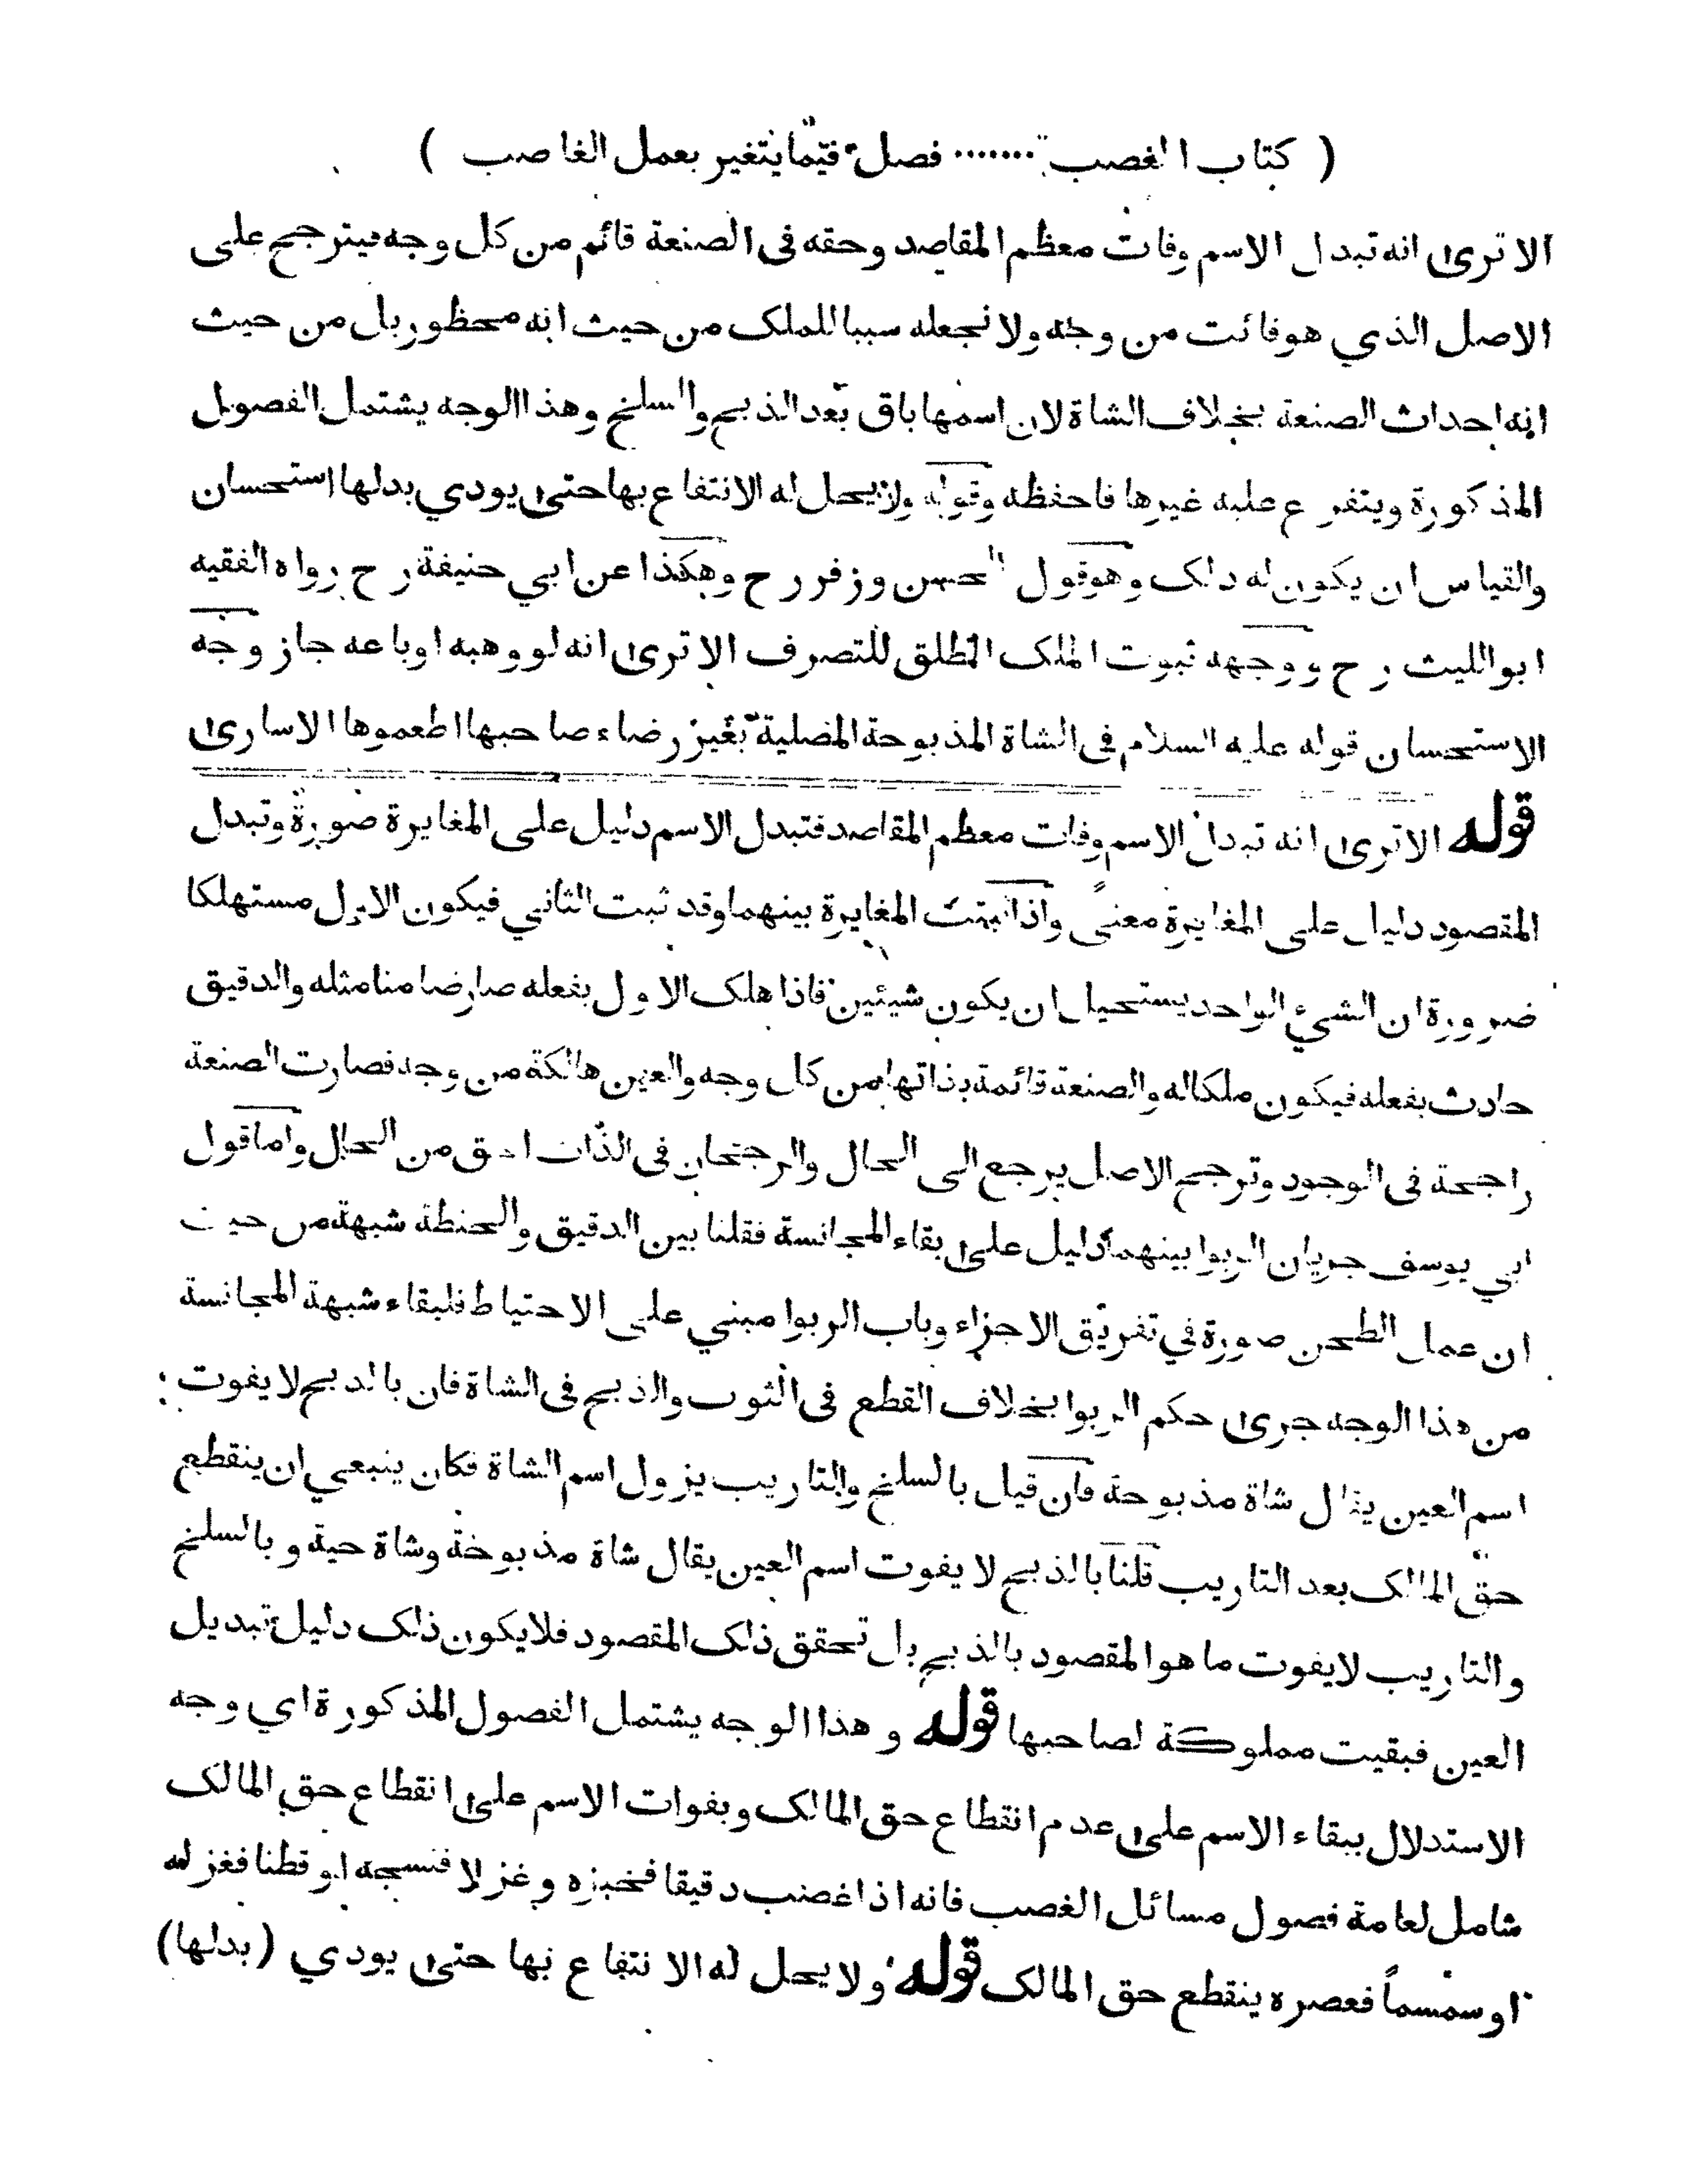 ( كتاب الغصب ....... فصل فيما يتغير بعمل الغاصب )
الا ترى انه تبدل الاسم وفات معظم المقاصد وحقه فى الصنعة قائم من كل وجه فيترجح على
الاصل الذي هو فائت من وجه ولا نجعله سببا للملك من حيث انه محظور بل من حيث
انه احداث الصنعة بخلاف الشاة لان اسمها باق بعد الذبح والسلخ وهذا الوجه يشتمل الفصول
المذكورة ويتفرع عليه غيرها فاحفظه وقوله ولا يحل له الانتفاع بها حتى يودي بدلها استحسان
والقياس ان يكون له ذلك وهو قول الحسن وزفر رح وهكذا عن ابي حنيفة رح رواه الفقيه
ابو الليث رح ووجهه ثبوت الملك المطلق للتصرف الا ترى انه لو وهبه او باعه جاز وجه
الاستحسان قوله عليه السلام فى الشاة المذبوحة المضلية بغير رضاء صاحبها اطعموها الاسارى
قوله الا ترى انه تبدل الاسم وفات معظم المقاصد فتبدل الاسم دليل على المغايرة صورة وتبدل
المقصود دليل على المغايرة معنى واذا ثبتت المغايرة بينهما وقد ثبت الثاني فيكون الاول مستهلكا
ضرورة ان الشيء الواحد يستحيل ان يكون شيئين فاذا هلك الاول بفعله صار ضامنا مثله والدقيق
حادث بفعله فيكون ملكا له والصنعة قائمة بذاتها من كل وجه والعين هالكة من وجه فصارت الصنعة
راجحة فى الوجود وترجح الاصل يرجع الى الحال والرجحان فى الذات احق من الحال واما قول
ابي يوسف جريان الربوا بينهما دليل على بقاء المجانسة فقلنا بين الدقيق والحنطة شبهة من حيث
ان عمل الطحن صورة في تفريق الاجزاء وباب الربوا مبني على الاحتياط فلبقاء شبهة المجانسة
من هذا الوجه جرى حكم الربوا بخلاف القطع فى الثوب والذبح فى الشاة فان بالذبح لا يفوت
اسم العين يقال شاة مذبوحة فان قيل بالسلخ والتاريب يزول اسم الشاة فكان ينبغي ان ينقطع
حق المالك بعد التاريب قلنا بالذبح لا يفوت اسم العين يقال شاة مذبوحة وشاة حية وبالسلخ
والتاريب لا يفوت ما هو المقصود بالذبح بل تحقق ذلك المقصود فلا يكون ذلك دليل تبديل
العين فبقيت مملوكة لصاحبها قوله وهذا الوجه يشتمل الفصول المذكورة اي وجه
الاستدلال ببقاء الاسم على عدم انقطاع حق المالك وبفوات الاسم على انقطاع حق المالك
شامل لعامة فصول مسائل الغصب فانه اذا غصب دقيقا فخبزه وغزلا فنسجه او قطنا فغزله
او سمسماً فعصره ينقطع حق المالك قوله ولا يحل له الانتفاع بها حتى يودي (بدلها)